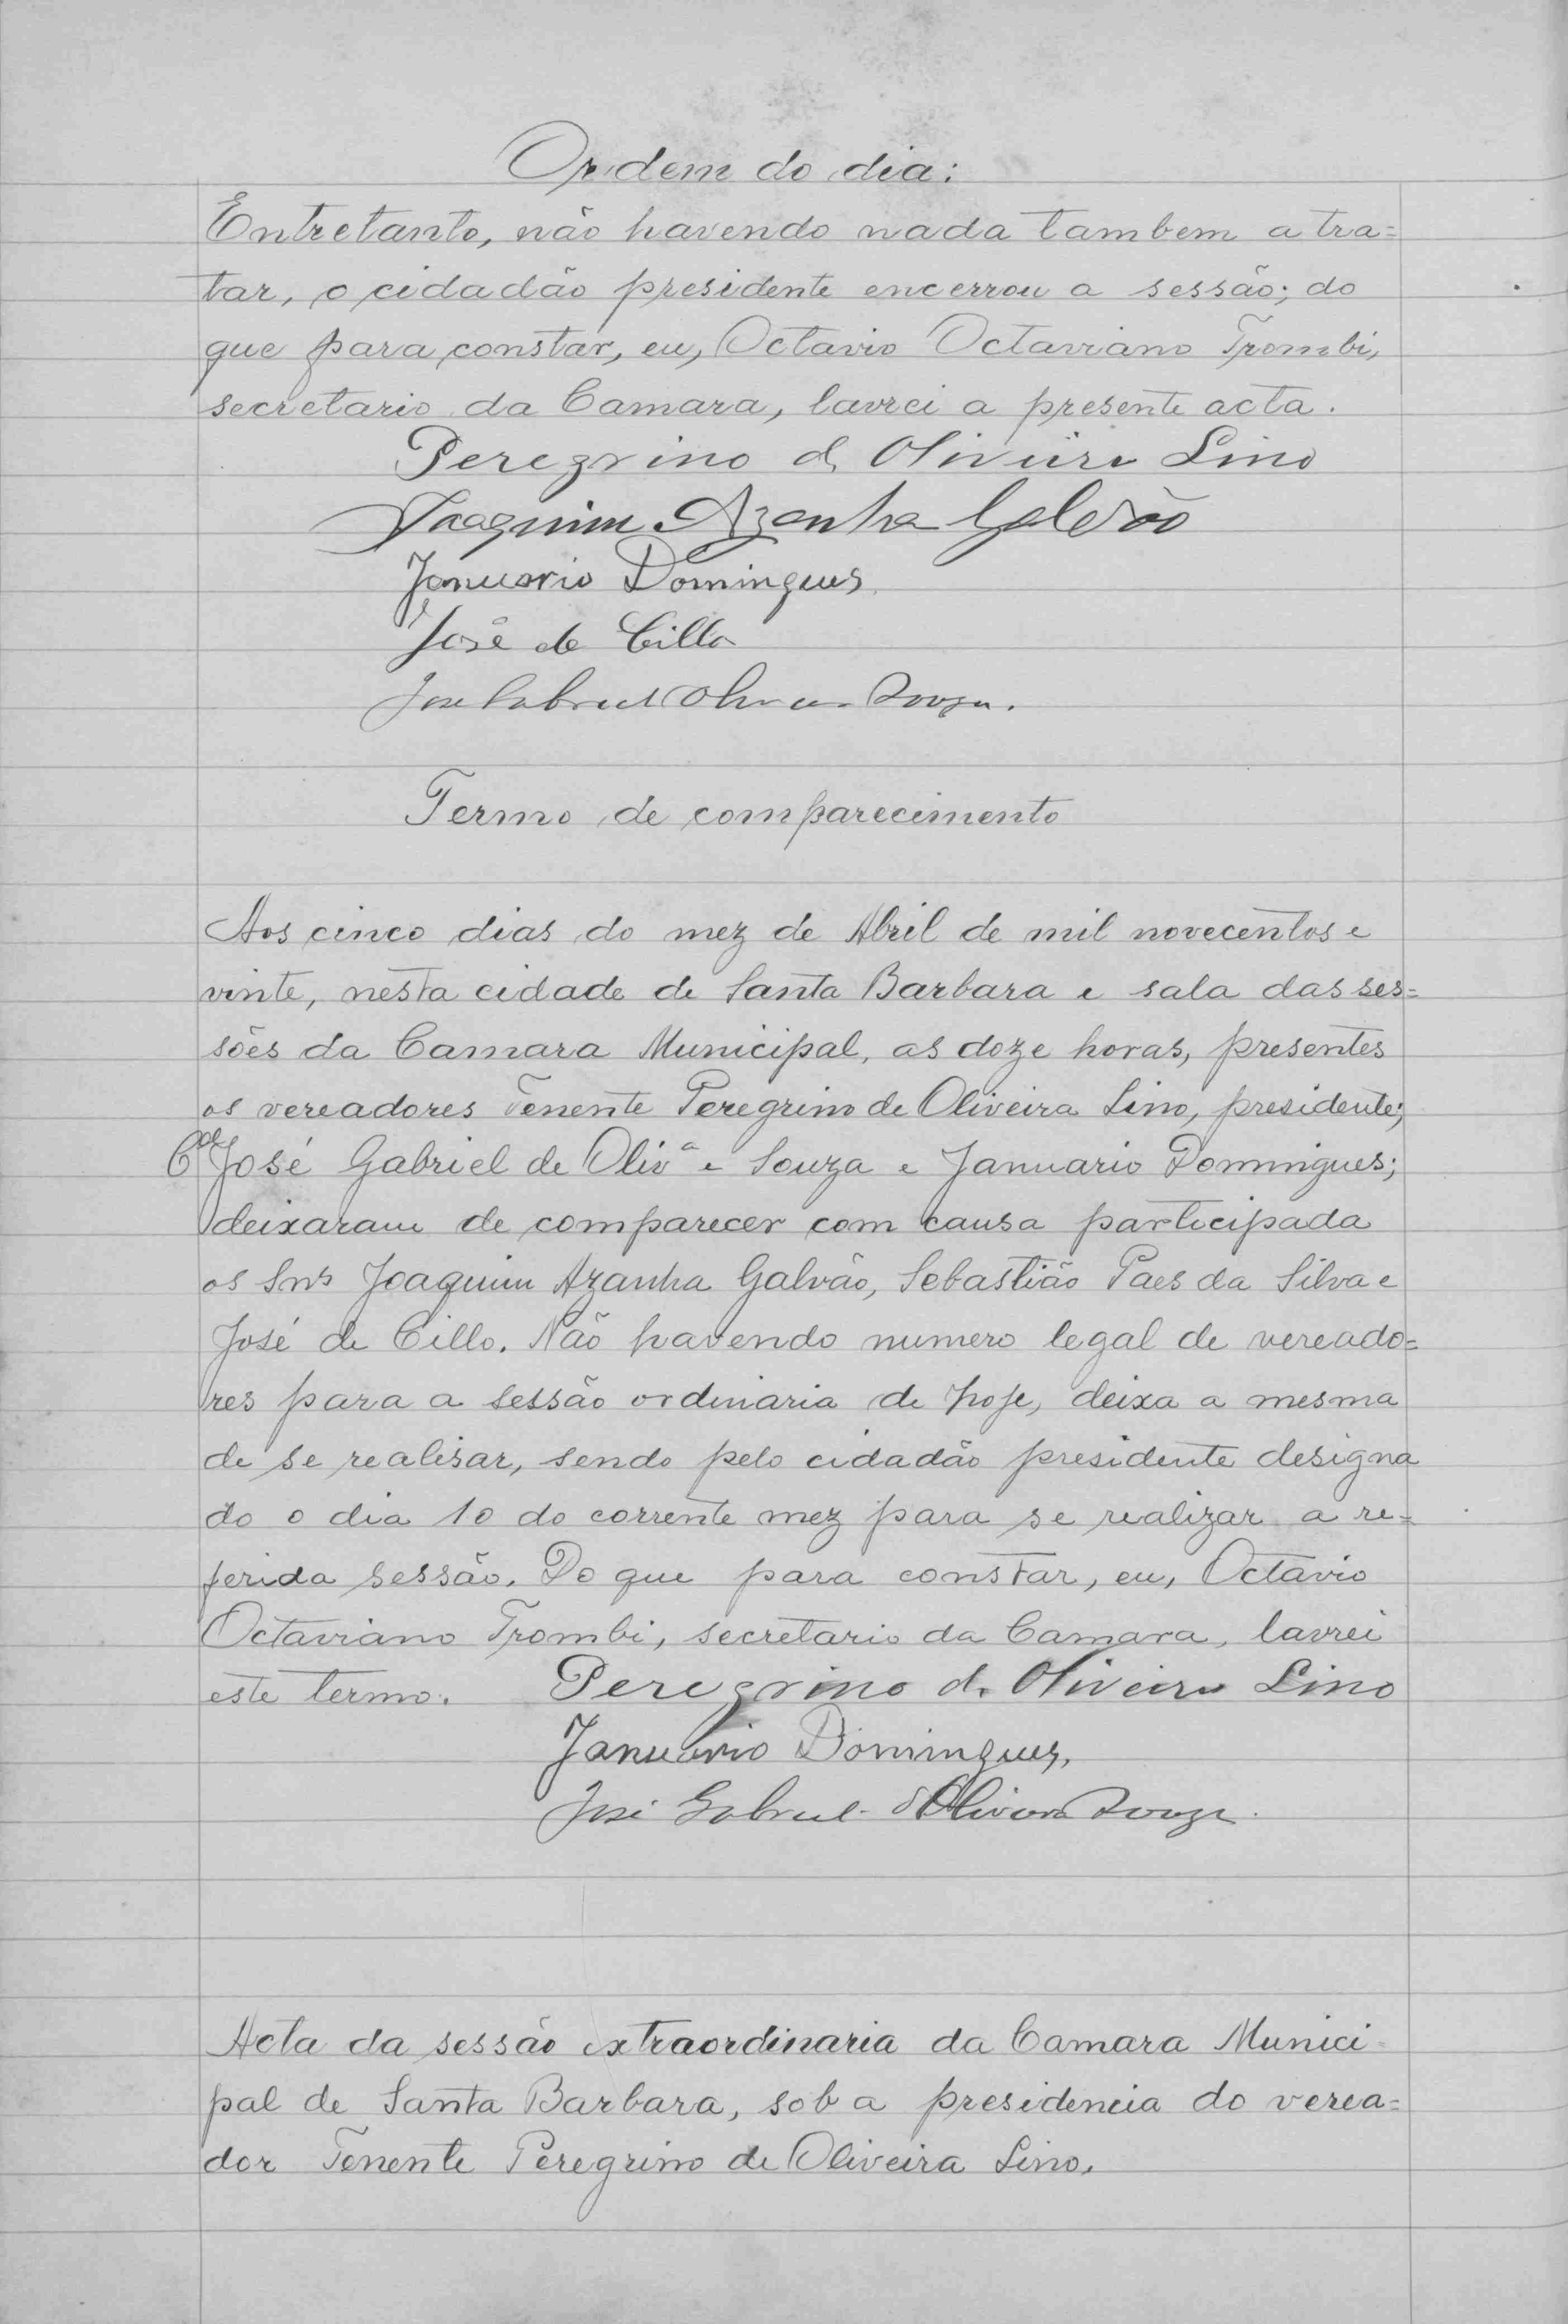 Ordem do dia:
Entretanto, não havendo nada tambem a tra=
tar, o cidadão presidente encerrou a sessão; do
que para constar, eu, Octavio Octaviano Trombi,
secretario da Camara, lavrei a presente acta.
Peregrino de Oliveira Lino
Joaquim Azanha Galvão
Januario Domingues
José de Cillo
José Gabriel Oliveira Souza.
Termo de comparecimento
Aos cinco dias do mez de Abril de mil novecentos e
vinte, nesta cidade de Santa Barbara e sala das ses=
sões da Camara Municipal, as doze horas, presentes
os vereadores Tenente Peregrino de Oliveira Lino, presidente;
Cel José Gabriel de Olivª e Souza e Januario Domingues;
deixaram de comparecer com causa participada
os Snrs Joaquim Azanha Galvão, Sebastião Paes da Silva e
José de Cillo. Não havendo numero legal de vereado=
res para a sessão ordinaria de hoje, deixa a mesma
de se realisar, sendo pelo cidadão presidente designa
do o dia 10 do corrente mez para se realizar a re=
ferida sessão. Do que para constar, eu, Octavio
Octaviano Trombi, secretario da Camara, lavrei
este termo. Peregrino de Oliveira Lino
Januario Domingues.
José Gabriel d'Oliveira Souza.
Acta da sessão extraordinaria da Camara Munici-
pal de Santa Barbara, sob a presidencia do verea=
dor Tenente Peregrino de Oliveira Lino.